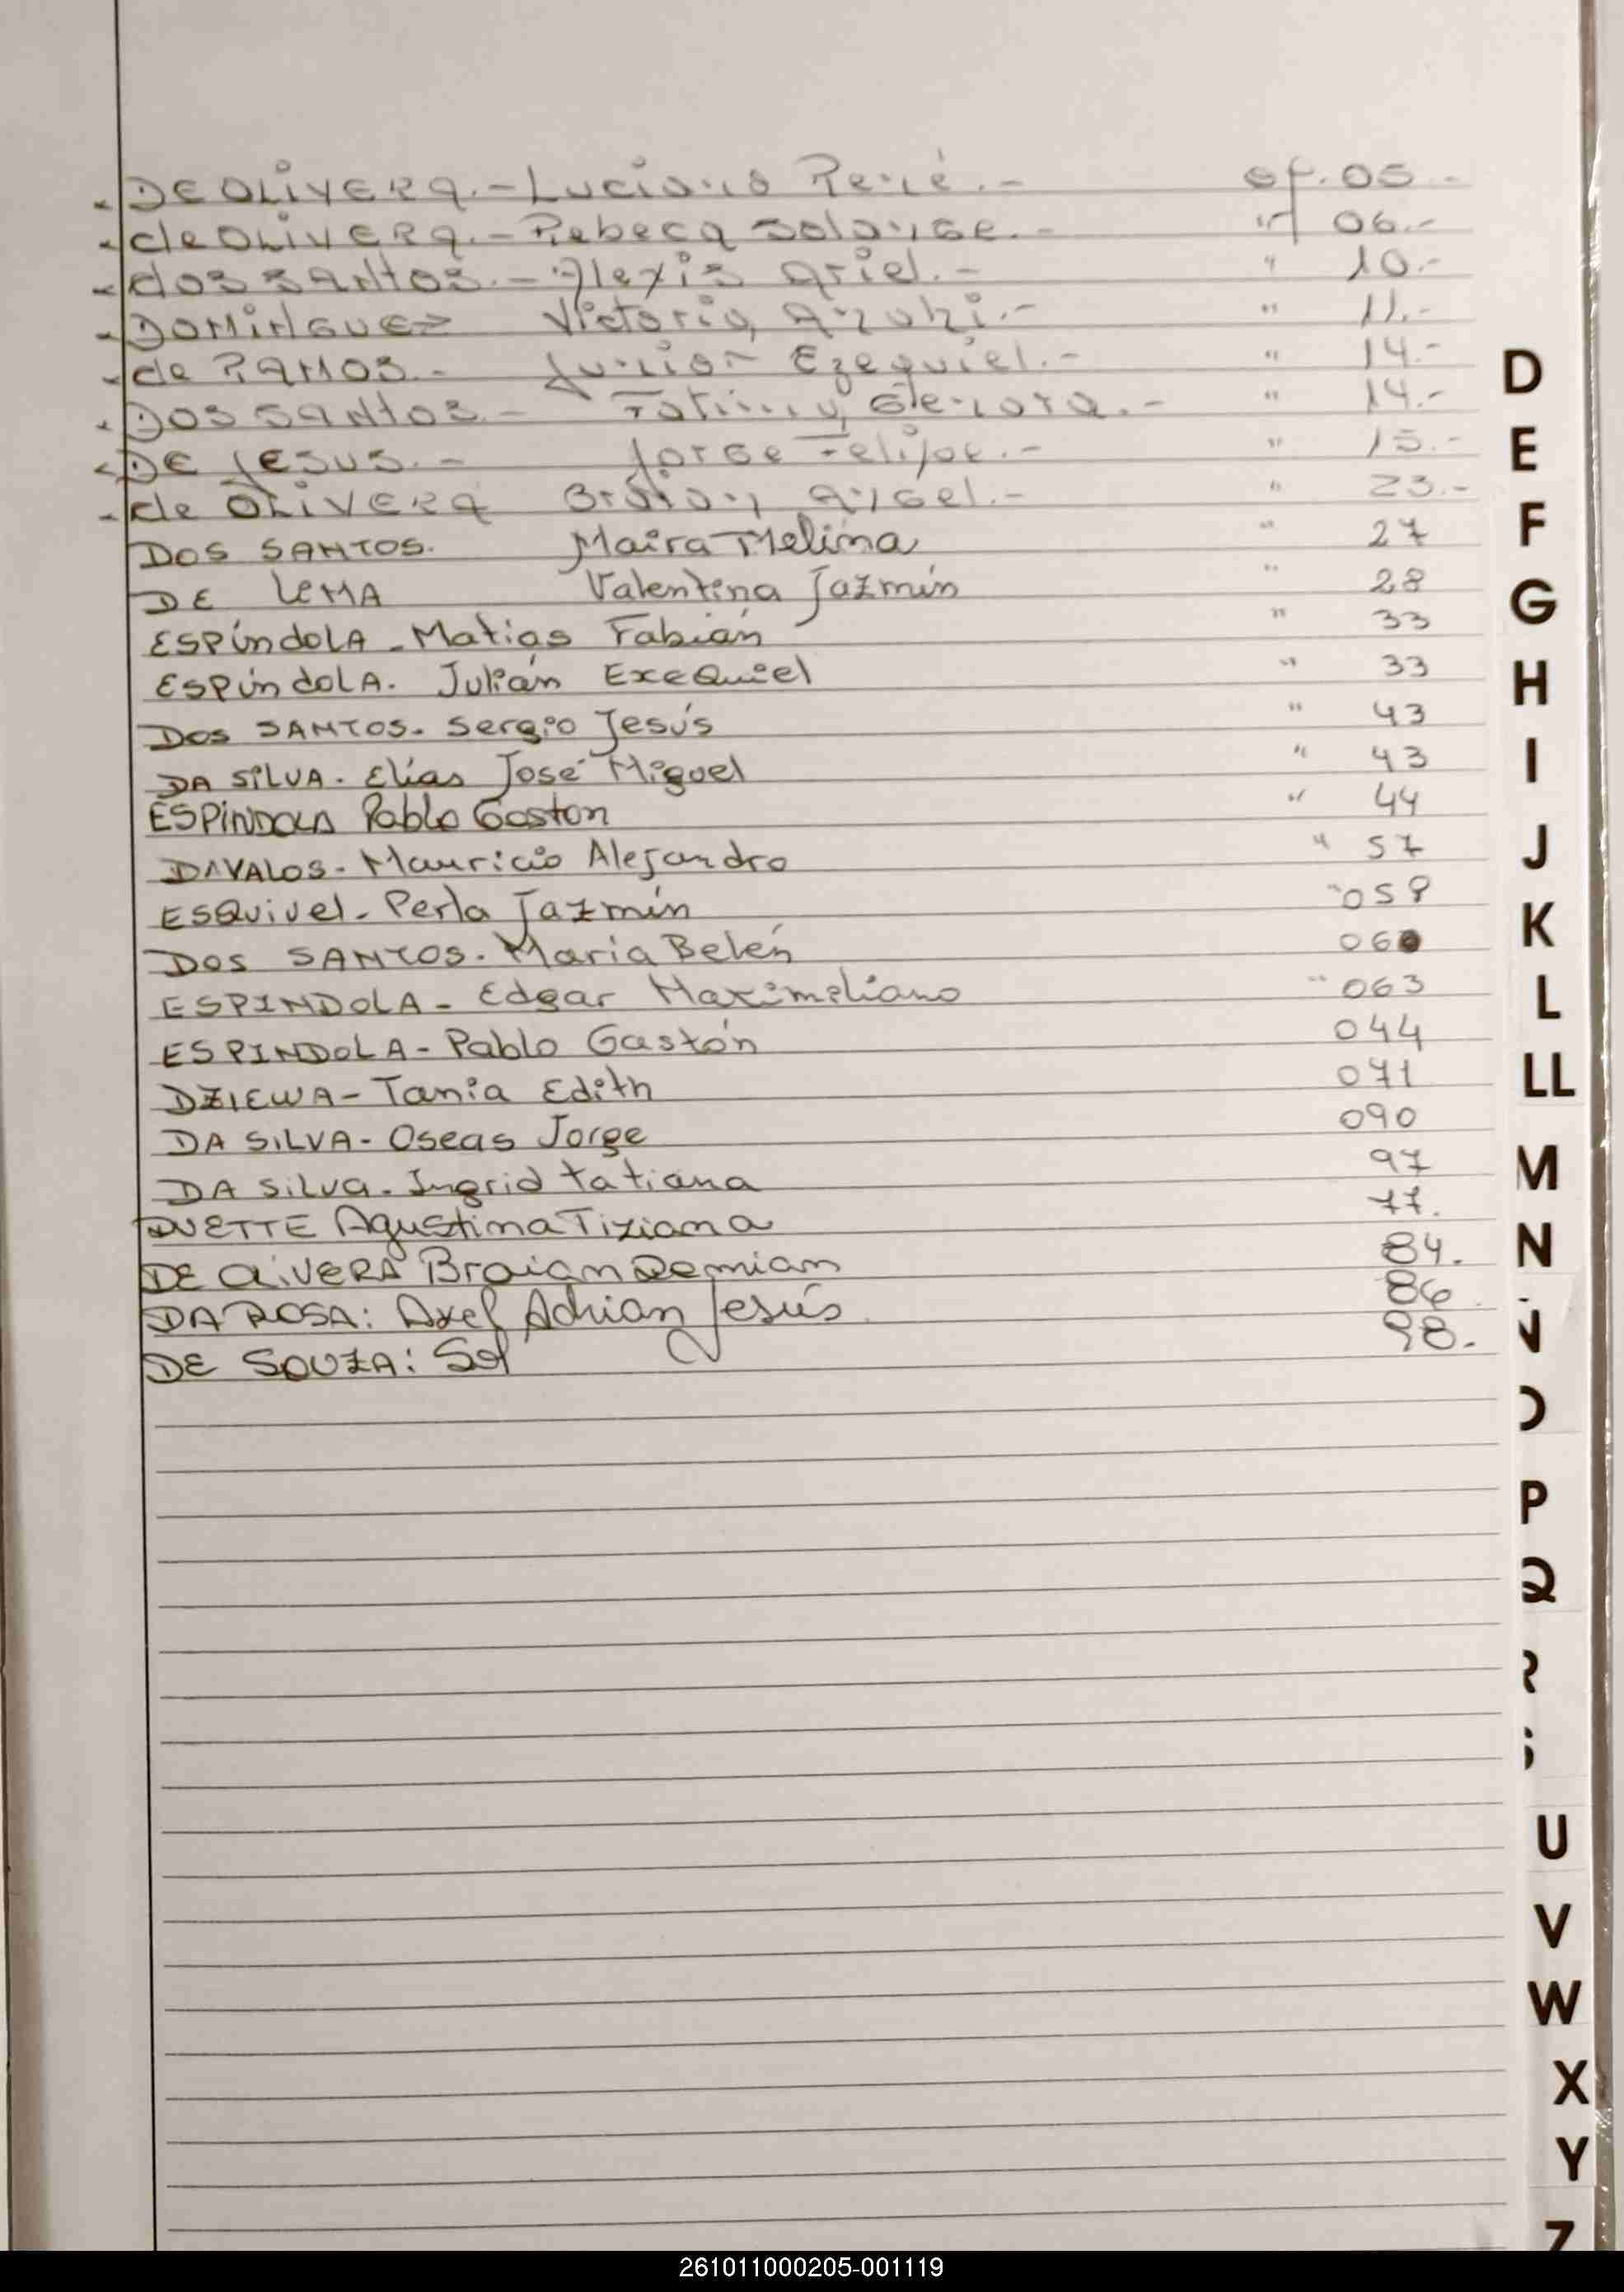 - DE OLIVERA.- Luciano René.- of. 05.-
- de OLIVERA.- Rebeca Solange.- " 06.-
- dos SANtos.- Alexis Ariel.- " 10.-
- DOMINGUEZ Victoria Anahi.- " 11.-
- de RAMOS.- Junior Ezequiel.- " 14.-
- DOS SANtos.- Fatima Genara.- " 14.-
- DE JESUS.- Jorge Felipe.- " 15.-
- de OLIVERA Braian Angel.- " 23.-
DOS SANTOS. Maira Melina " 27
DE LEMA Valentina Jazmín " 28
ESPíndOLA - Matias Fabián " 33
ESPíndOLA. Julián ExeQuiel " 33
DOS SANTOS. Sergio Jesús " 43
DA SILVA. Elías José Miguel " 43
ESPINDOLA Pablo Gaston " 44
DAVALOS. Mauricio Alejandro " 57
ESQuivel - Perla Jazmín " 058
DOS SANTOS. Maria Belén 060
ESPINDOLA - Edgar Maximiliano " 063
ESPINDOLA - Pablo Gastón 044
DZIEWA - Tania Edith 071
DA SILVA - Oseas Jorge 090
DA SILVA. Ingrid tatiana 97
DUETTE Agustina Tiziana 77.
DE OLIVERA Braian Demian 84.
DA ROSA: Axel Adrian Jesús 86
DE SOUZA: Sol 98.
D
E
F
G
H
I
J
K
L
LL
M
N
P
Q
U
V
W
X
Y
Z
261011000205-001119